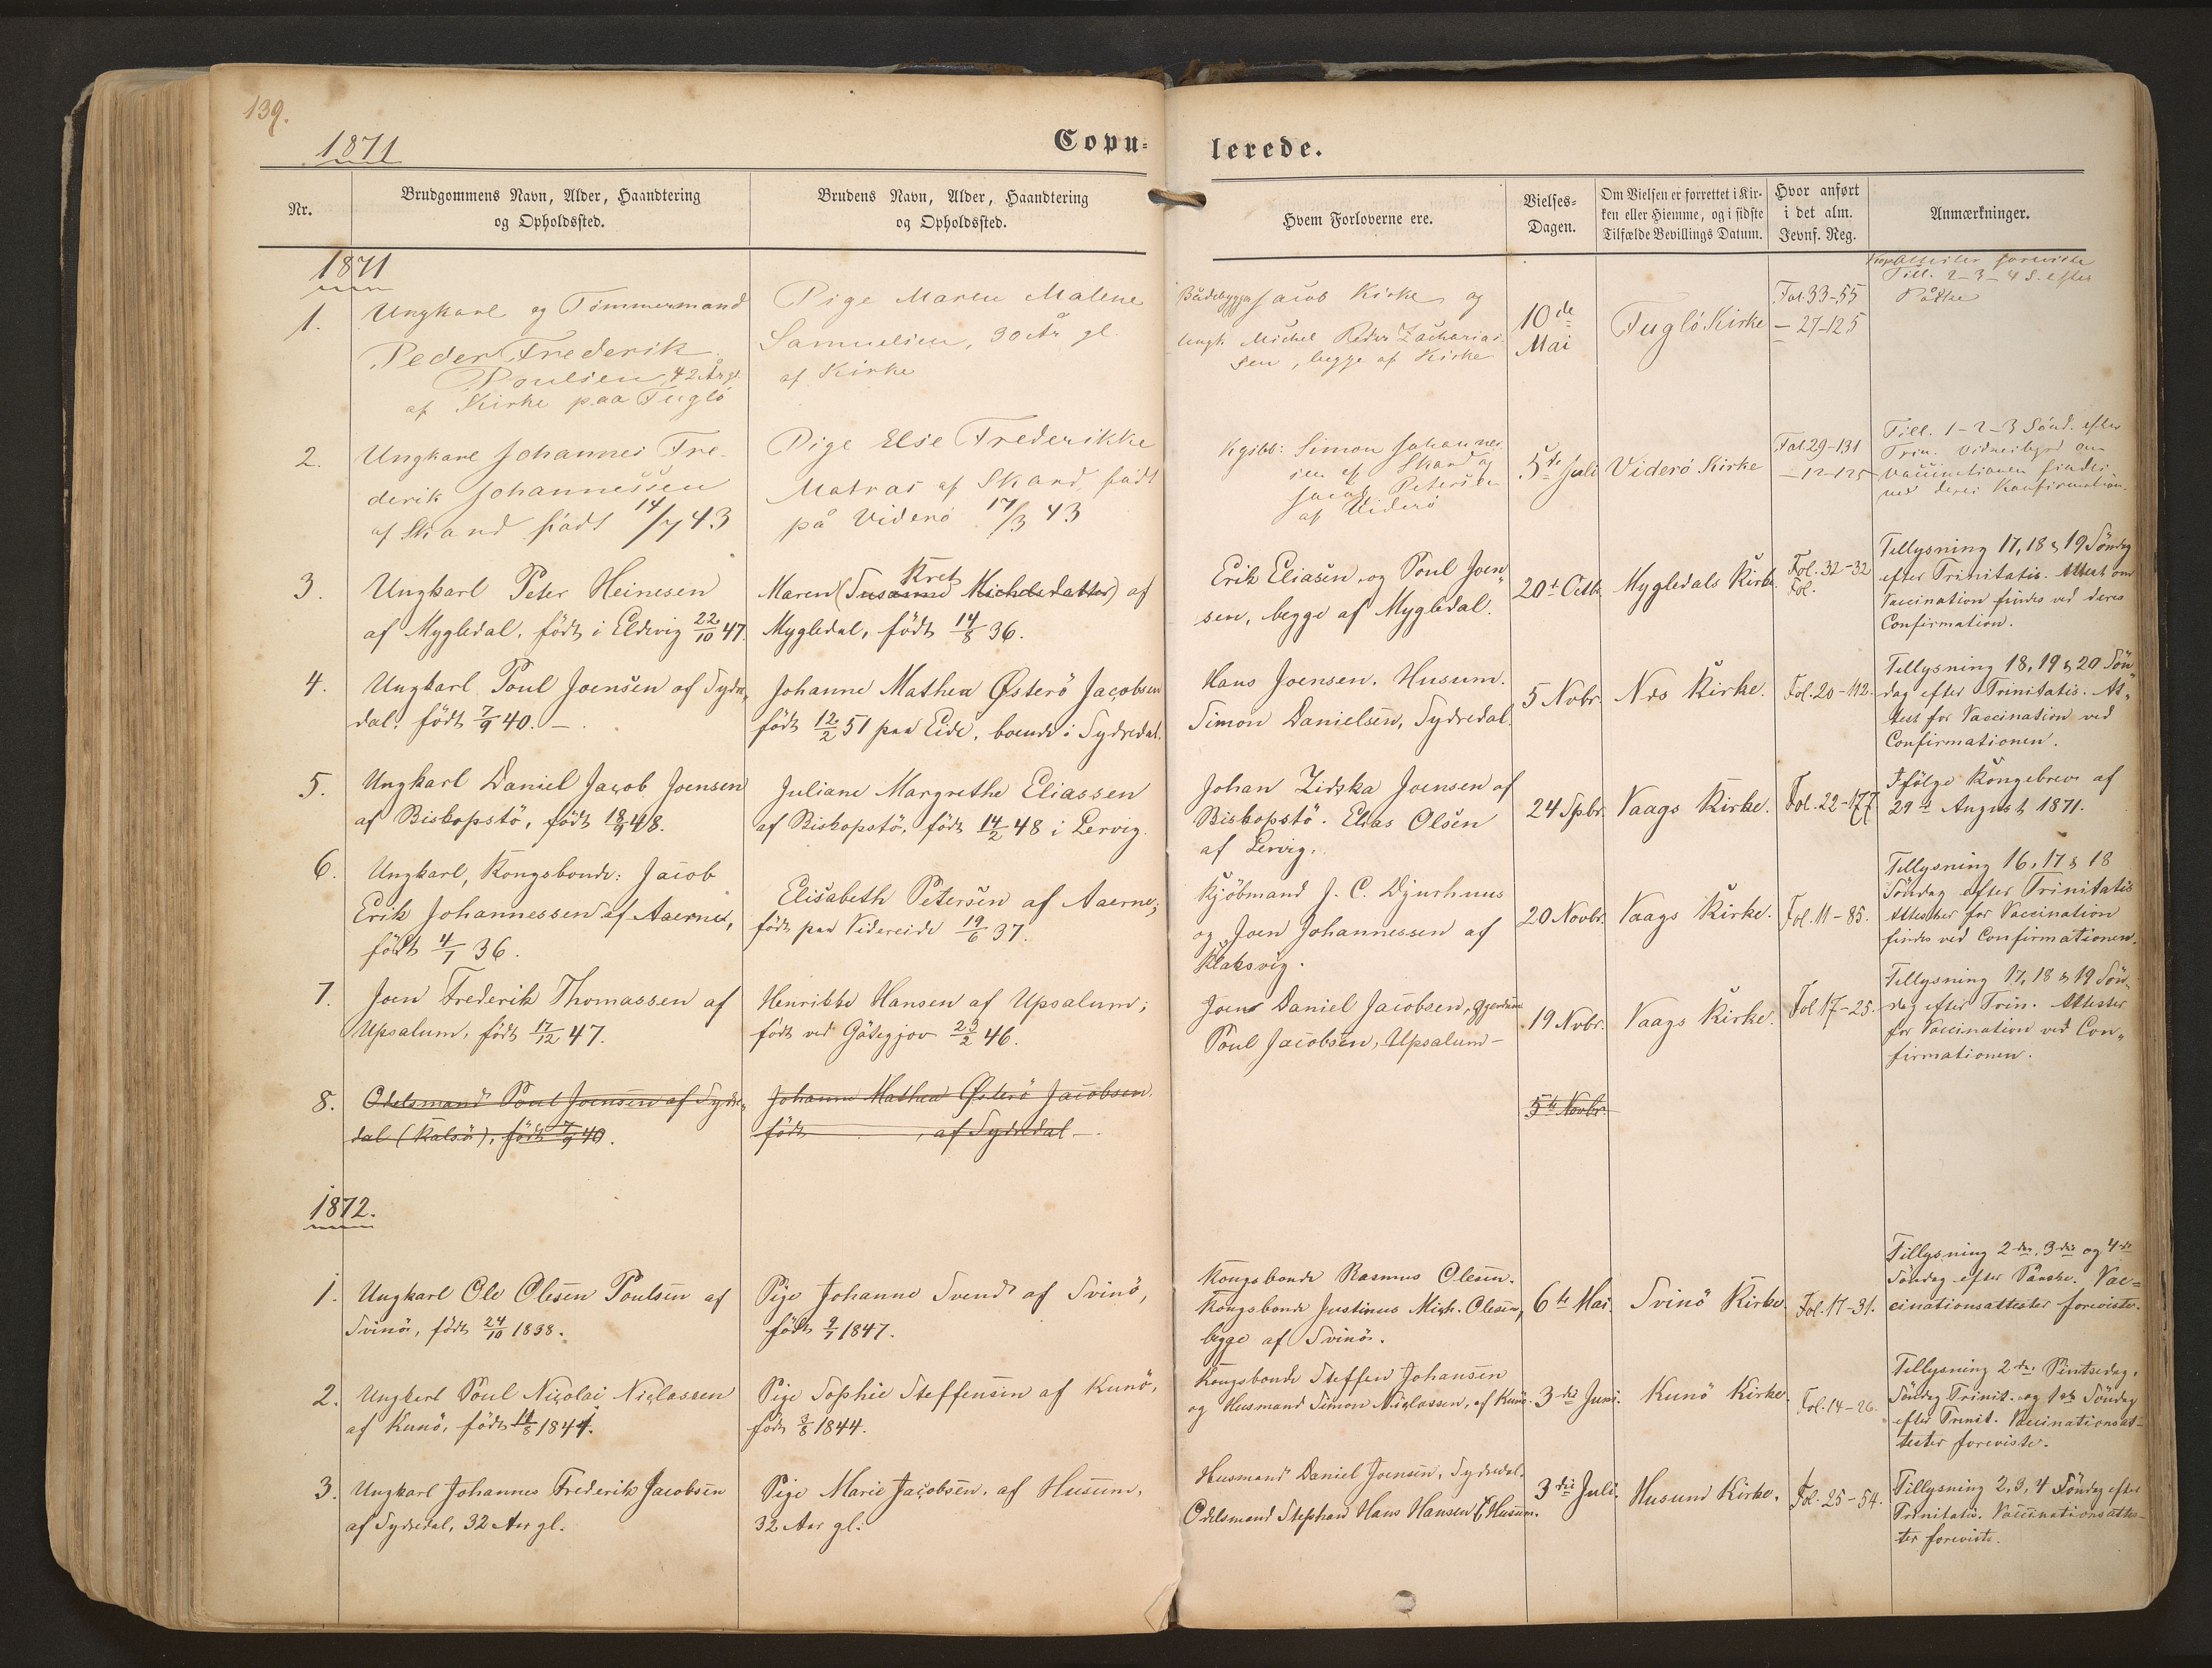 139.
1871
Copu=
lerede.
Nr.
Brudgommens Navn, Alder, Haandtering
og Opholdssted.
Brudens Navn, Alder, Haandtering
og Opholdssted.
Hvem Forloverne ere.
Vielses-
Dagen.
Om Vielsen er forrettet i Kir-
ken eller Hjemme, og i sidste
Tilfælde Bevillings Datum.
Hvor anført
i det alm.
Jevnf. Reg.
Anmærkninger.
1871
1.
Ungkarl og Tömmermand
Peder Frederik
Poulsen, 42 År gl.
af Kirke paa Fuglö
Pige Maren Malene
Samuelsen, 30 År gl.
af Kirke
Baadebygger Jacob Kirke og
Ungk. Michel Peder Zacharias-
sen, begge af Kirke
10de
Mai
Fuglö Kirke
Fol. 33-55
— 27-125
Attester foreviste
Till. 2-3-4 S. efter
Påske
2.
Ungkarl Johannes Fre-
derik Johannessen
af Skard födt 14/7 43
Pige Else Frederikke
Matras af Skard, födt
på Viderö 17/3 43
Kgsbb: Simon Johannes-
sen af Skard og
Jacob Petersen
af Viderö
5te Juli
Viderö Kirke
Fol. 29-131
— 12-125
Till. 1-2-3 Sönd. efter
Trin. Vidnesbyrd om
Vaccinationen findes
ved deres Konfirmation.
3.
Ungkarl Peter Heinesen
af Mygledal, födt i Eldevig 22/10 47.
Kret
Maren (Susanne Michelsdatter) af
Mygledal, födt 14/8 36.
Erik Eliasen og Poul Joen„
sen, begge af Mygledal.
20de Octb.
Mygledals Kirke.
Fol. 32-32
Fol.
Tillysning 17, 18 & 19 Söndag
efter Trinitatis. Attest om
Vaccination findes ved deres
Confirmation.
4.
Ungkarl Poul Joensen af Sydre„
dal, födt 7/9 40. —
Johanne Mathea Østerö Jacobsen
födt 12/2 51 paa Eide, boende i Sydredal.
Hans Joensen, Husum.
Simon Danielsen, Sydredal
5 Novbr.
Nes Kirke.
Fol. 20-112.
Tillysning 18, 19 & 20 Sön„
dag efter Trinitatis. At„
test for Vaccination ved
Confirmationen.
5.
Ungkarl Daniel Jacob Joensen
af Biskopstö, födt 18/9 48.
Juliane Margrethe Eliassen
af Biskopstö, födt 14/2 48 i Lervig.
Johan Zidska Joensen af
Biskopstö. Elias Olsen
af Lervig.
24 Spbr.
Vaags Kirke.
Fol. 22-177
Ifölge Kongebrev af
29de August 1871.
6.
Ungkarl, Kongsbonde: Jacob
Erik Johannessen af Aaerne,
födt 4/1 36.
Elisabeth Petersen af Aaerne;
födt paa Videreide 19/6 37.
Kjöbmand J. C. Djurhuus
og Joen Johannessen af
Klaksvig.
20 Novbr.
Vaags Kirke.
Fol. 11-85.
Tillysning 16, 17 & 18
Söndag efter Trinitatis
Attester for Vaccination
findes ved Confirmationen.
7.
Joen Frederik Thomassen af
Upsalum, födt 17/12 47.
Henrikke Hansen af Upsalum;
födt ved Götegjov 23/2 46.
Joen Daniel Jacobsen,
Poul Jacobsen, Upsalum —
19 Nvbr.
Vaags Kirke.
Fol 17-25.
Tillysning 17, 18 & 19 Sön„
dag efter Trin. Attester
for Vaccination ved Con„
firmationen.
8.
Odelsmand Poul Joensen af Sydre„
dal (Kalsö), födt 7/9 40.
Johanne Mathea Østerö Jacobsen.
födt , af Sydredal —.
5te Novbr.
1872.
1.
Ungkarl Ole Olesen Poulsen af
Svinö, födt 24/10 1838.
Pige Johanne Svends af Svinö,
födt 9/1 1847.
Kongsbonde Rasmus Olesen.
Kongsbonde Justinus Mich. Olesen,
begge af Svinö.
6te Mai.
Svinö Kirke.
Fol. 17-31.
Tillysning 2den, 3die og 4de
Söndag efter Paaske. Vac=
cinationsattester foreviste.
2.
Ungkarl Poul Nicolai Niclassen
af Kunö, födt 14/8 1844.
Pige Sophie Steffensen af Kunö,
födt 3/8 1844.
Kongsbonde Steffen Johansen
og Husmand Simon Niclassen, af Kunö.
3die Juni.
Kunö Kirke.
Fol. 14-26.
Tillysning 2den Pintsedag,
Söndag Trinit. og 1ste Söndag
efter Trinit. Vaccinationsat-
tester foreviste.
3.
Ungkarl Johannes Frederik Jacobsen
af Sydredal, 32 Aar gl.
Pige Marie Jacobsen, af Husum,
32 Aar gl.
Husmand Daniel Joensen, Sydredal.
Odelsmand Stephan Hans Hansen, Husum.
3die Juli.
Husum Kirke.
Fol. 25-54.
Tillysning 2, 3, 4 Söndag efter
Trinitatis. Vaccinationsattes-
ter foreviste.